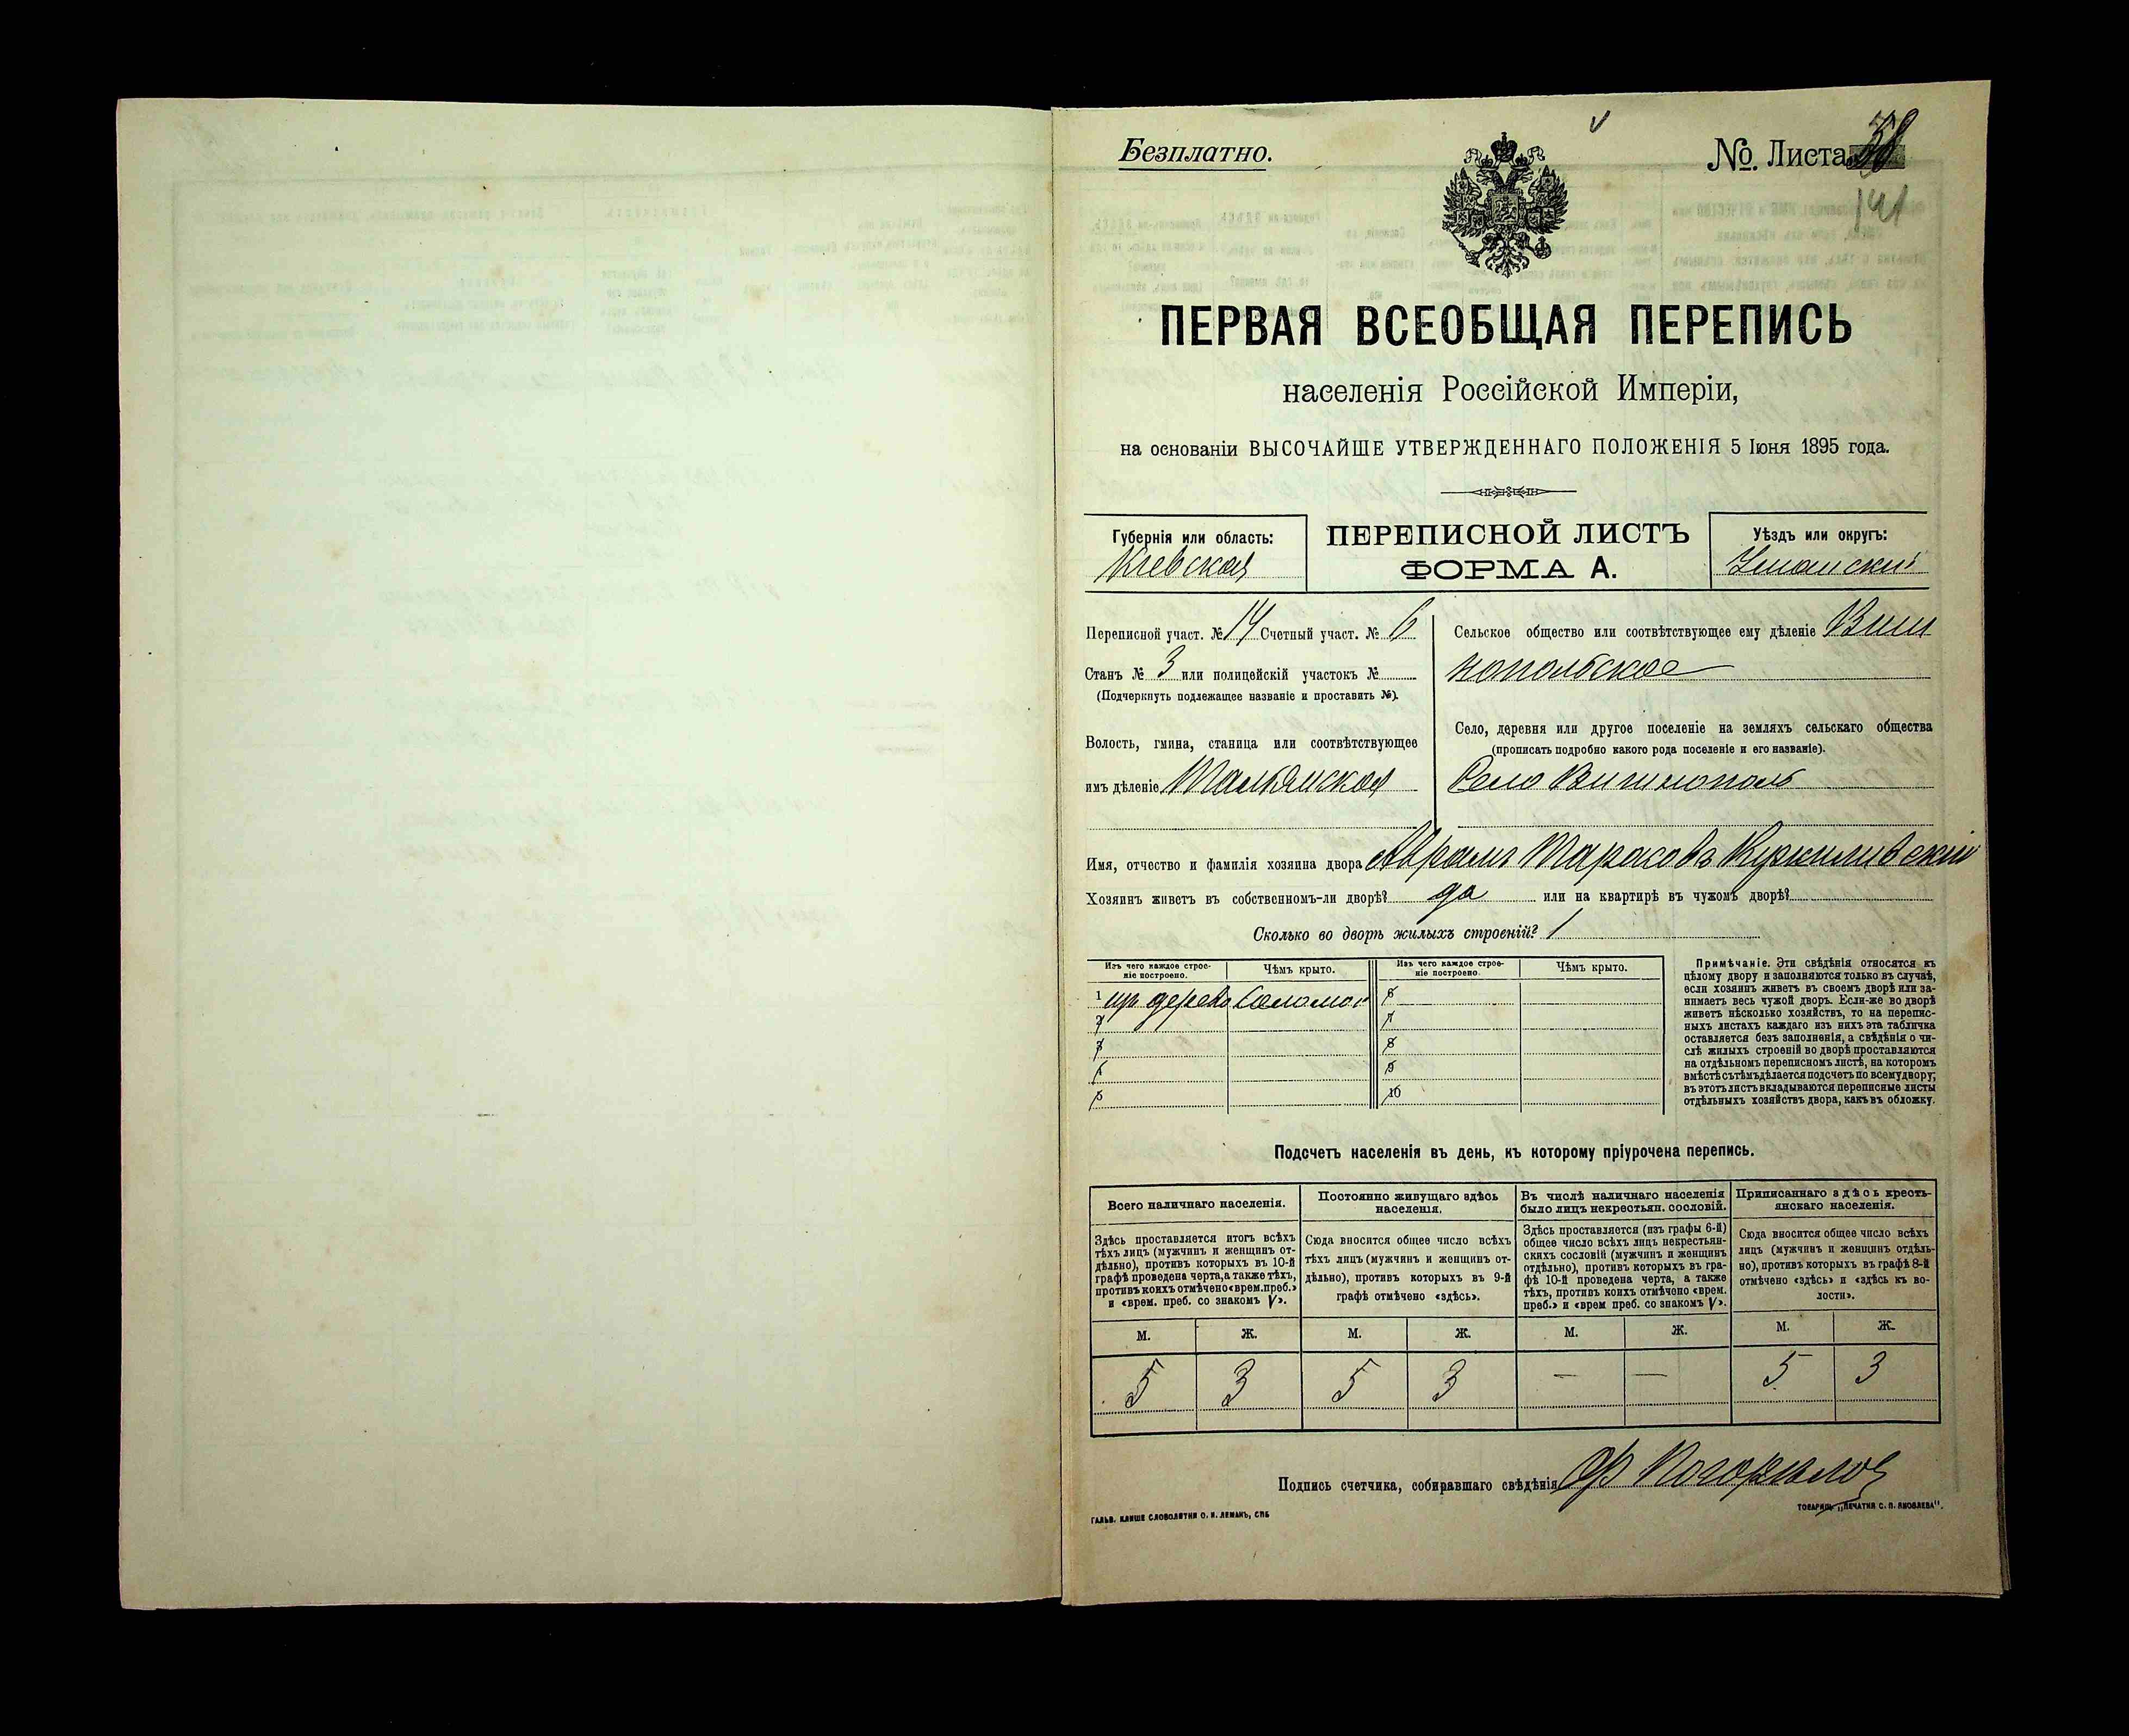 Безплатно.
№ Листа 38
141
ПЕРВАЯ ВСЕОБЩАЯ ПЕРЕПИСЬ
населенія Россійской Имперіи,
на основаніи ВЫСОЧАЙШЕ УТВЕРЖДЕННАГО ПОЛОЖЕНІЯ 5 Іюня 1895 года.
Губернія или область:
Кіевская
ПЕРЕПИСНОЙ ЛИСТЪ
ФОРМА А.
Уѣздъ или округъ:
Уманскій
Переписной участ. № 14 Счетный участ. № 6
Станъ № 3 или полицейскій участокъ №
(Подчеркнуть подлежащее названіе и проставить №).
Волость, гмина, станица или соотвѣтствующее
имъ дѣленіе Тальянская
Сельское общество или соотвѣтствующее ему дѣленіе Виш
нопольское
Село, деревня или другое поселеніе на земляхъ сельскаго общества
(прописать подробно какого рода поселеніе и его названіе).
Село Вишнополь
Имя, отчество и фамилія хозяина двора Аврамъ Тарасовъ
Хозяинъ живетъ въ собственномъ-ли дворѣ? да или на квартирѣ въ чужомъ дворѣ?
Сколько во дворѣ жилыхъ строеній? 1
Изъ чего каждое строе-
ніе построено.
Чѣмъ крыто.
Изъ чего каждое строе-
ніе построено.
Чѣмъ крыто.
1 дерева Соломой
2
3
4
5
6
7
8
9
10
Примѣчаніе. Эти свѣдѣнія относятся къ
цѣлому двору и заполняются только въ случаѣ,
если хозяинъ живетъ въ своемъ дворѣ или за-
нимаетъ весь чужой дворъ. Если-же во дворѣ
живетъ нѣсколько хозяйствъ, то на перепис-
ныхъ листахъ каждаго изъ нихъ эта табличка
оставляется безъ заполненія, а свѣдѣнія о чи-
слѣ жилыхъ строеній во дворѣ проставляются
на отдѣльномъ переписномъ листѣ, на которомъ
вмѣстѣ съ тѣмъ дѣлается подсчетъ по всему двору;
въ этотъ листъ вкладываются переписные листы
отдѣльныхъ хозяйствъ двора, какъ въ обложку.
Подсчетъ населенія въ день, къ которому пріурочена перепись.
Всего наличнаго населенія.
Здѣсь проставляется итогъ всѣхъ
тѣхъ лицъ (мужчинъ и женщинъ от-
дѣльно), противъ которыхъ въ 10-й
графѣ проведена черта, а также тѣхъ,
противъ коихъ отмѣчено «врем. преб.»
и «врем. преб. со знакомъ V».
Постоянно живущаго здѣсь
населенія.
Сюда вносится общее число всѣхъ
тѣхъ лицъ (мужчинъ и женщинъ от-
дѣльно), противъ которыхъ въ 9-й
графѣ отмѣчено «здѣсь».
Въ числѣ наличнаго населенія
было лицъ некрестьян. сословій.
Здѣсь проставляется (изъ графы 6-й)
общее число всѣхъ лицъ некрестьян-
скихъ сословій (мужчинъ и женщинъ
отдѣльно), противъ которыхъ въ гра-
фѣ 10-й проведена черта, а также
тѣхъ, противъ коихъ отмѣчено «врем.
преб.» и «врем преб. со знакомъ V».
Приписаннаго здѣсь кресть-
янскаго населенія.
Сюда вносится общее число всѣхъ
лицъ (мужчинъ и женщинъ отдѣль-
но), противъ которыхъ въ графѣ 8-й
отмѣчено «здѣсь» и «здѣсь къ во-
лости».
М. Ж. М. Ж. М. Ж. М. Ж.
5 3 5 3 — — 5 3
Подпись счетчика, собиравшаго свѣдѣнія
ГАЛЬВ. КЛИШЕ СЛОВОЛИТНИ О. И. ЛЕМАНЪ, СПБ
ТОВАРИЩ. „ПЕЧАТНЯ С. П. ЯКОВЛЕВА".